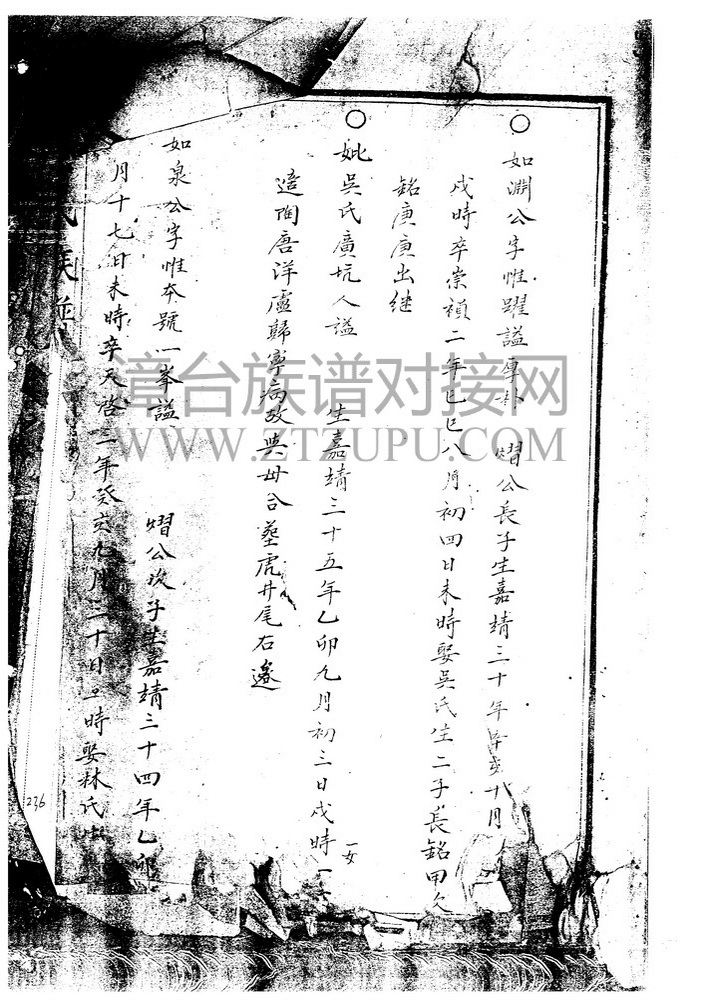 ○ 如淵公字惟躍謚厚朴 熠公長子生嘉靖三十年辛亥十月
戌時卒崇禎二年己巳八月初四日未時娶吳氏生二子長銘甲次
銘庚庚出继
○ 妣吳氏廣坑人謚 生嘉靖三十五年乙卯九月初三日戌時一女
適陶唐洋盧歸寧病故與母合塟虎井尾右邊
如泉公字惟夲號一峯謚 熠公次子生嘉靖三十四年乙卯
月十七日未時卒天啓三年癸亥九月二十日丑時娶林氏生
氏族
236
漳台族谱对接网
WWW.ZTZUPU.COM